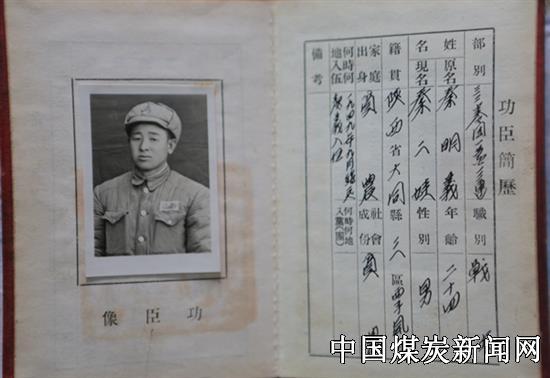 功臣簡歷
部別 團一營三連 職別 戰
姓名 原名 秦明義 年齡 二十四
現名 秦二娃 性別 男
籍貫 陝西省大同縣八區
家庭出身 貧農 社會成份 貧
何時何地入伍 一九四九年九月 起義入伍 何時何地入黨(團)
備考
功臣像
中国煤炭新闻网